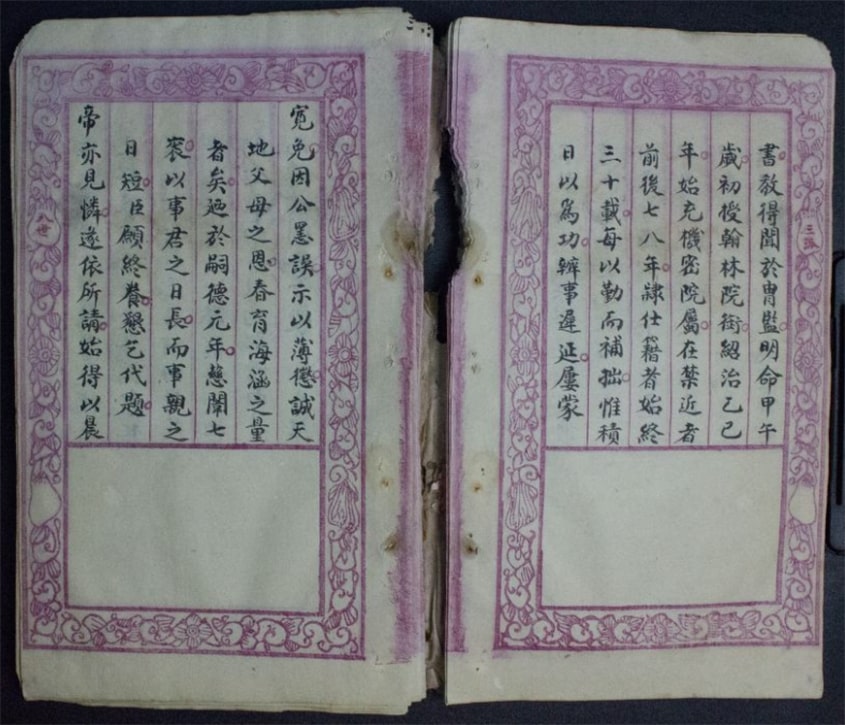 三派
書教得聞於冑監明命甲午
歲初授翰林院銜紹治乙巳
年始充機密院屬在禁近者
前後七八年隷仕籍者始終
三十載每以勤而補拙惟積
日以爲功辦事遲延屢蒙
寬免因公罣誤示以薄懲誠天
地父母之恩春育海涵之量
者矣廼於嗣德元年慈闈七
袠以事君之日長而事親之
日短臣願終養懇乞代題
帝亦見憐遂依所請始得以晨
八世